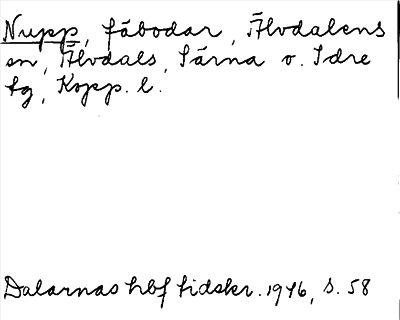 Nupp, fäbodar, Älvdalens
sn, Älvdals, Särna o. Idre
tg, Kopp. l.
Dalarnas hbf tidskr. 1946, s. 58